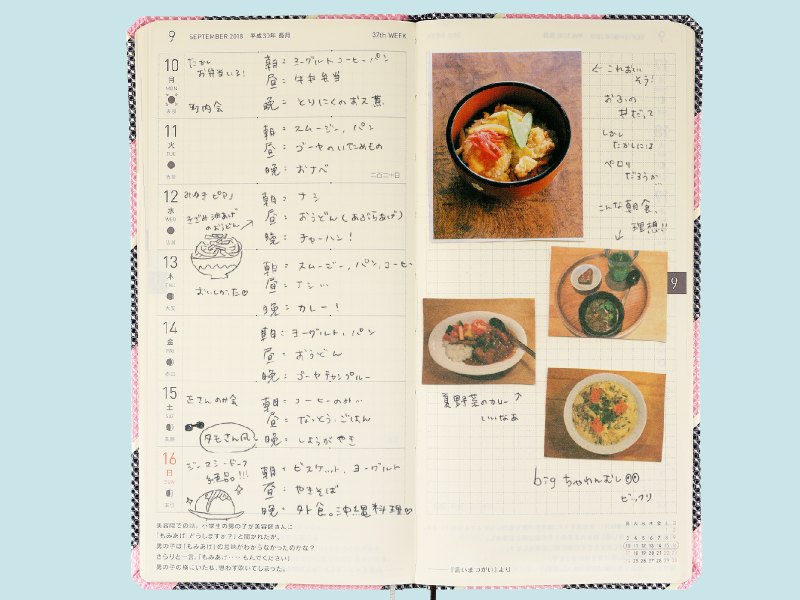 9 SEPTEMBER 2018 平成30年 長月 37th WEEK
10
月
MON
お弁当いる!
町内会
朝: ヨーグルト コーヒー パン
昼: 牛丼弁当
晩: とりにくのおス煮
11
火
TUE
朝: スムージー、パン
昼: ゴーヤのいためもの
晩: おナベ
二百二十日
12
水
WED
みゆき ピアノ
きざみ油あげ
のおうどん
朝: ナシ
昼: おうどん(あぶらあげ)
晩: チャーハン!
13
木
THU
おいしかった♡
朝: スムージー、パン、コーヒー
昼: ナシ…
晩: カレー!
14
金
FRI
朝: ヨーグルト、パン
昼: おうどん
晩: ゴーヤチャンプルー
15
土
SAT
正さん のみ会
タモさん風
朝: コーヒーのみ…
昼: なっとうごはん
晩: しょうがやき
16
日
SUN
朝: ビスケット、ヨーグルト
昼: やきそば
晩: 外食。沖縄料理♡
美容院でのは、小学生の男の子が美容師さんに
「もみあげ、どうしますか?」と聞かれたが、
男の子は「もみあげ」の意味がわからなかったのかな?
きらりと一言。「もみあげ‥‥もんでください」
男の子の横にいた私、思わず吹いてしまった。
← これおいしそう!
おふの
丼だって
しかし
たかしには
ペロリ
だろうが…
こんな朝食、
理想!!
9
夏野菜のカレー↑
いいなあ
big ちゃわんむし
ビックリ
月 火 水 木 金 土 日
1 2
3 4 5 6 7 8 9
10 11 12 13 14 15 16
17 18 19 20 21 22 23
24 25 26 27 28 29 30
——『言いまつがい』より